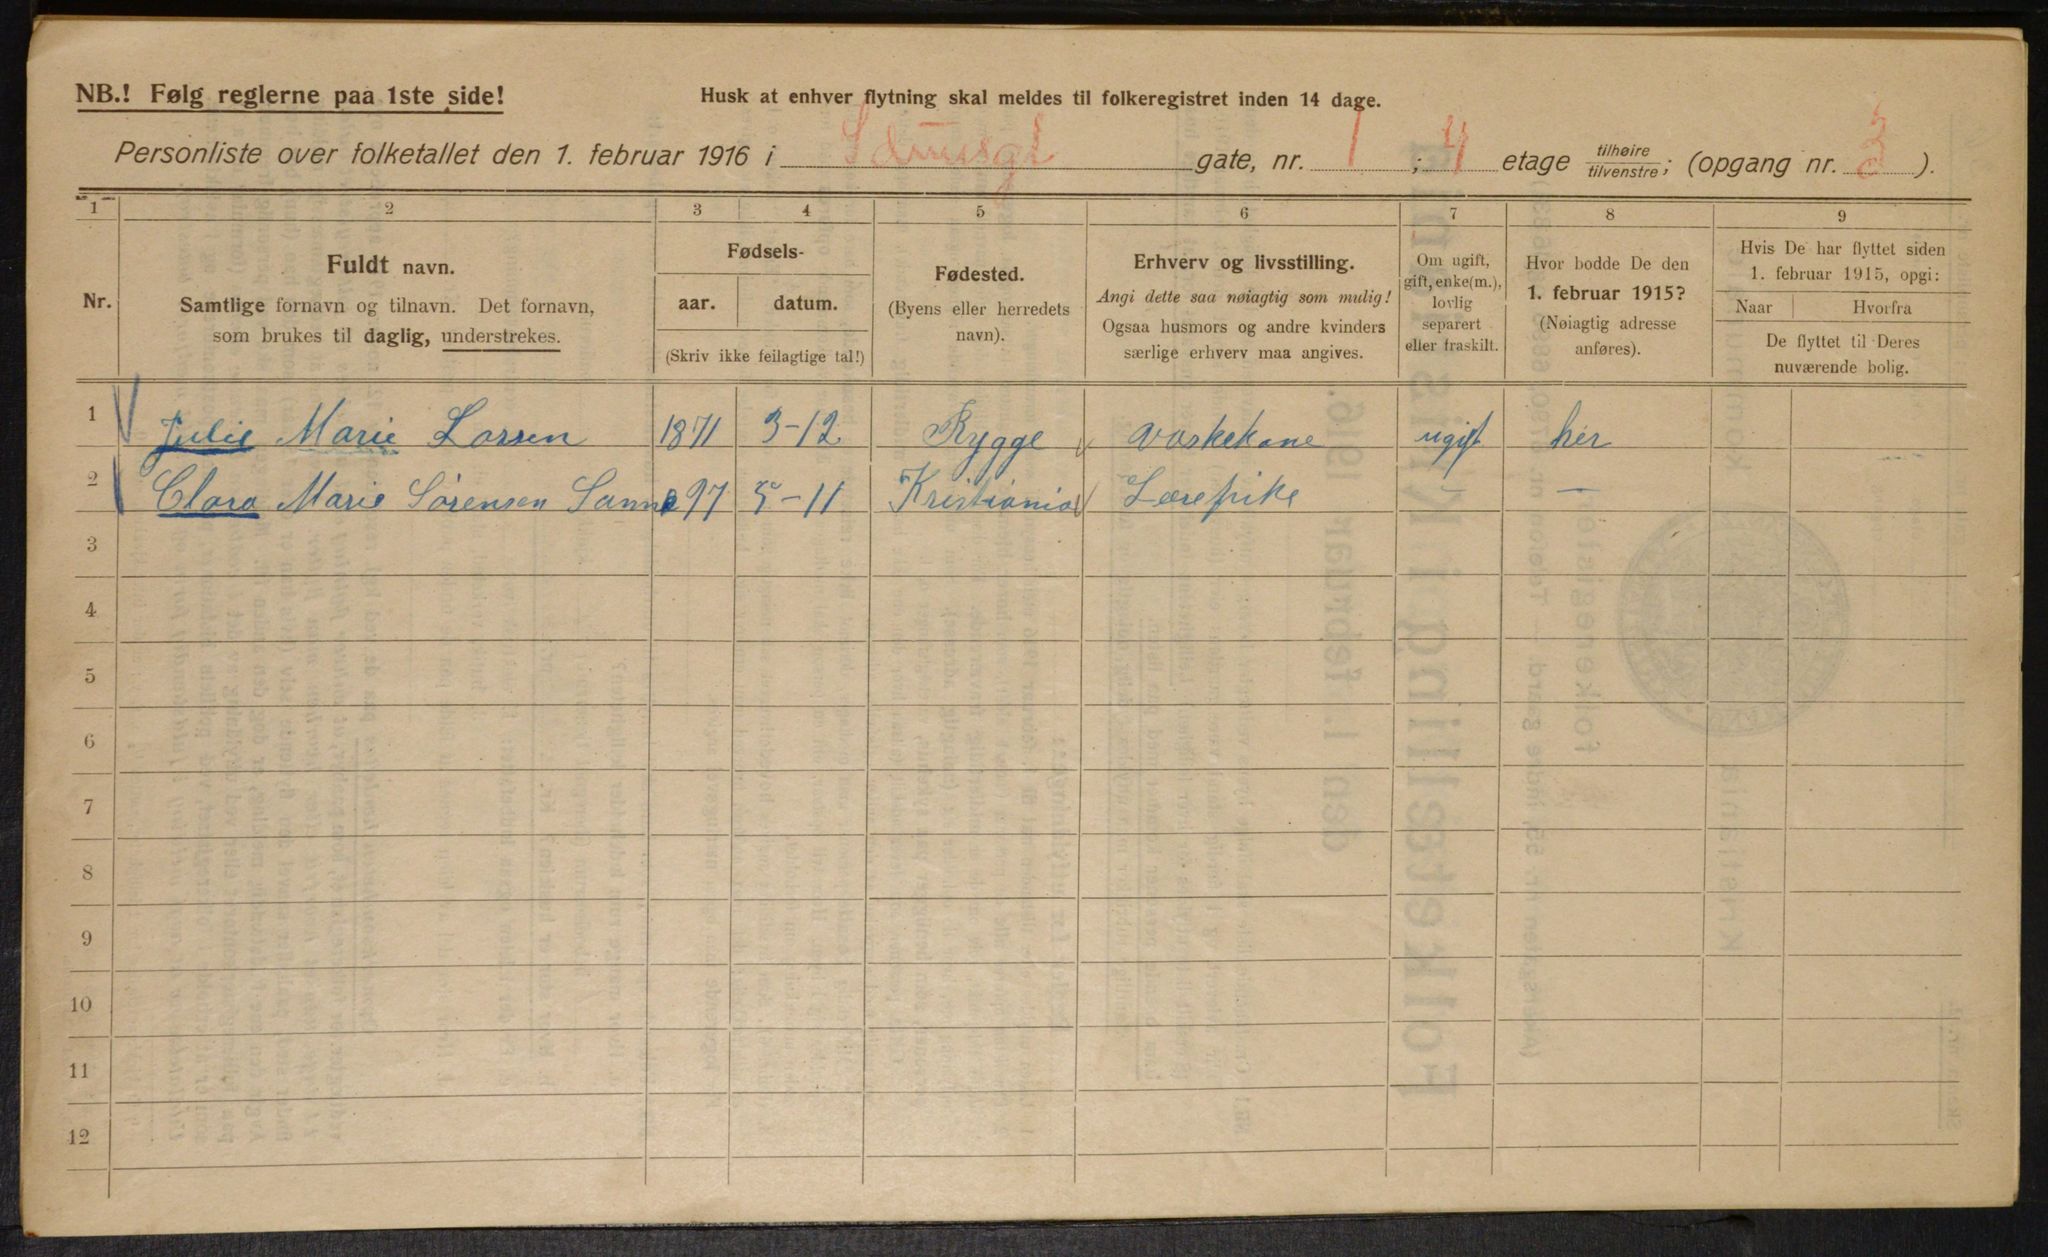 NB.! Følg reglerne paa 1ste side!
Husk at enhver flytning skal meldes til folkeregistret inden 14 dage.
Personliste over folketallet den 1. februar 1916 i gate, nr. 1; 4 etage tilhøire/tilvenstre; (opgang nr. 3).
1 2 3 4 5 6 7 8 9
Nr.
Fuldt navn.
Samtlige fornavn og tilnavn. Det fornavn,
som brukes til daglig, understrekes.
Fødsels-
aar. datum.
(Skriv ikke feilagtige tal!)
Fødested.
(Byens eller herredets
navn).
Erhverv og livsstilling.
Angi dette saa nøiagtig som mulig!
Ogsaa husmors og andre kvinders
særlige erhverv maa angives.
Om ugift,
gift, enke(m.),
lovlig
separert
eller fraskilt.
Hvor bodde De den
1. februar 1915?
(Nøiagtig adresse
anføres).
Hvis De har flyttet siden
1. februar 1915, opgi:
Naar Hvorfra
De flyttet til Deres
nuværende bolig.
1 Julie Marie Larsen 1871 3-12 Rygge vaskekone ugift her
2 Clara Marie Sørensen Sanne 97 5-11 Kristiania Lærepike - —
3
4
5
6
7
8
9
10
11
12